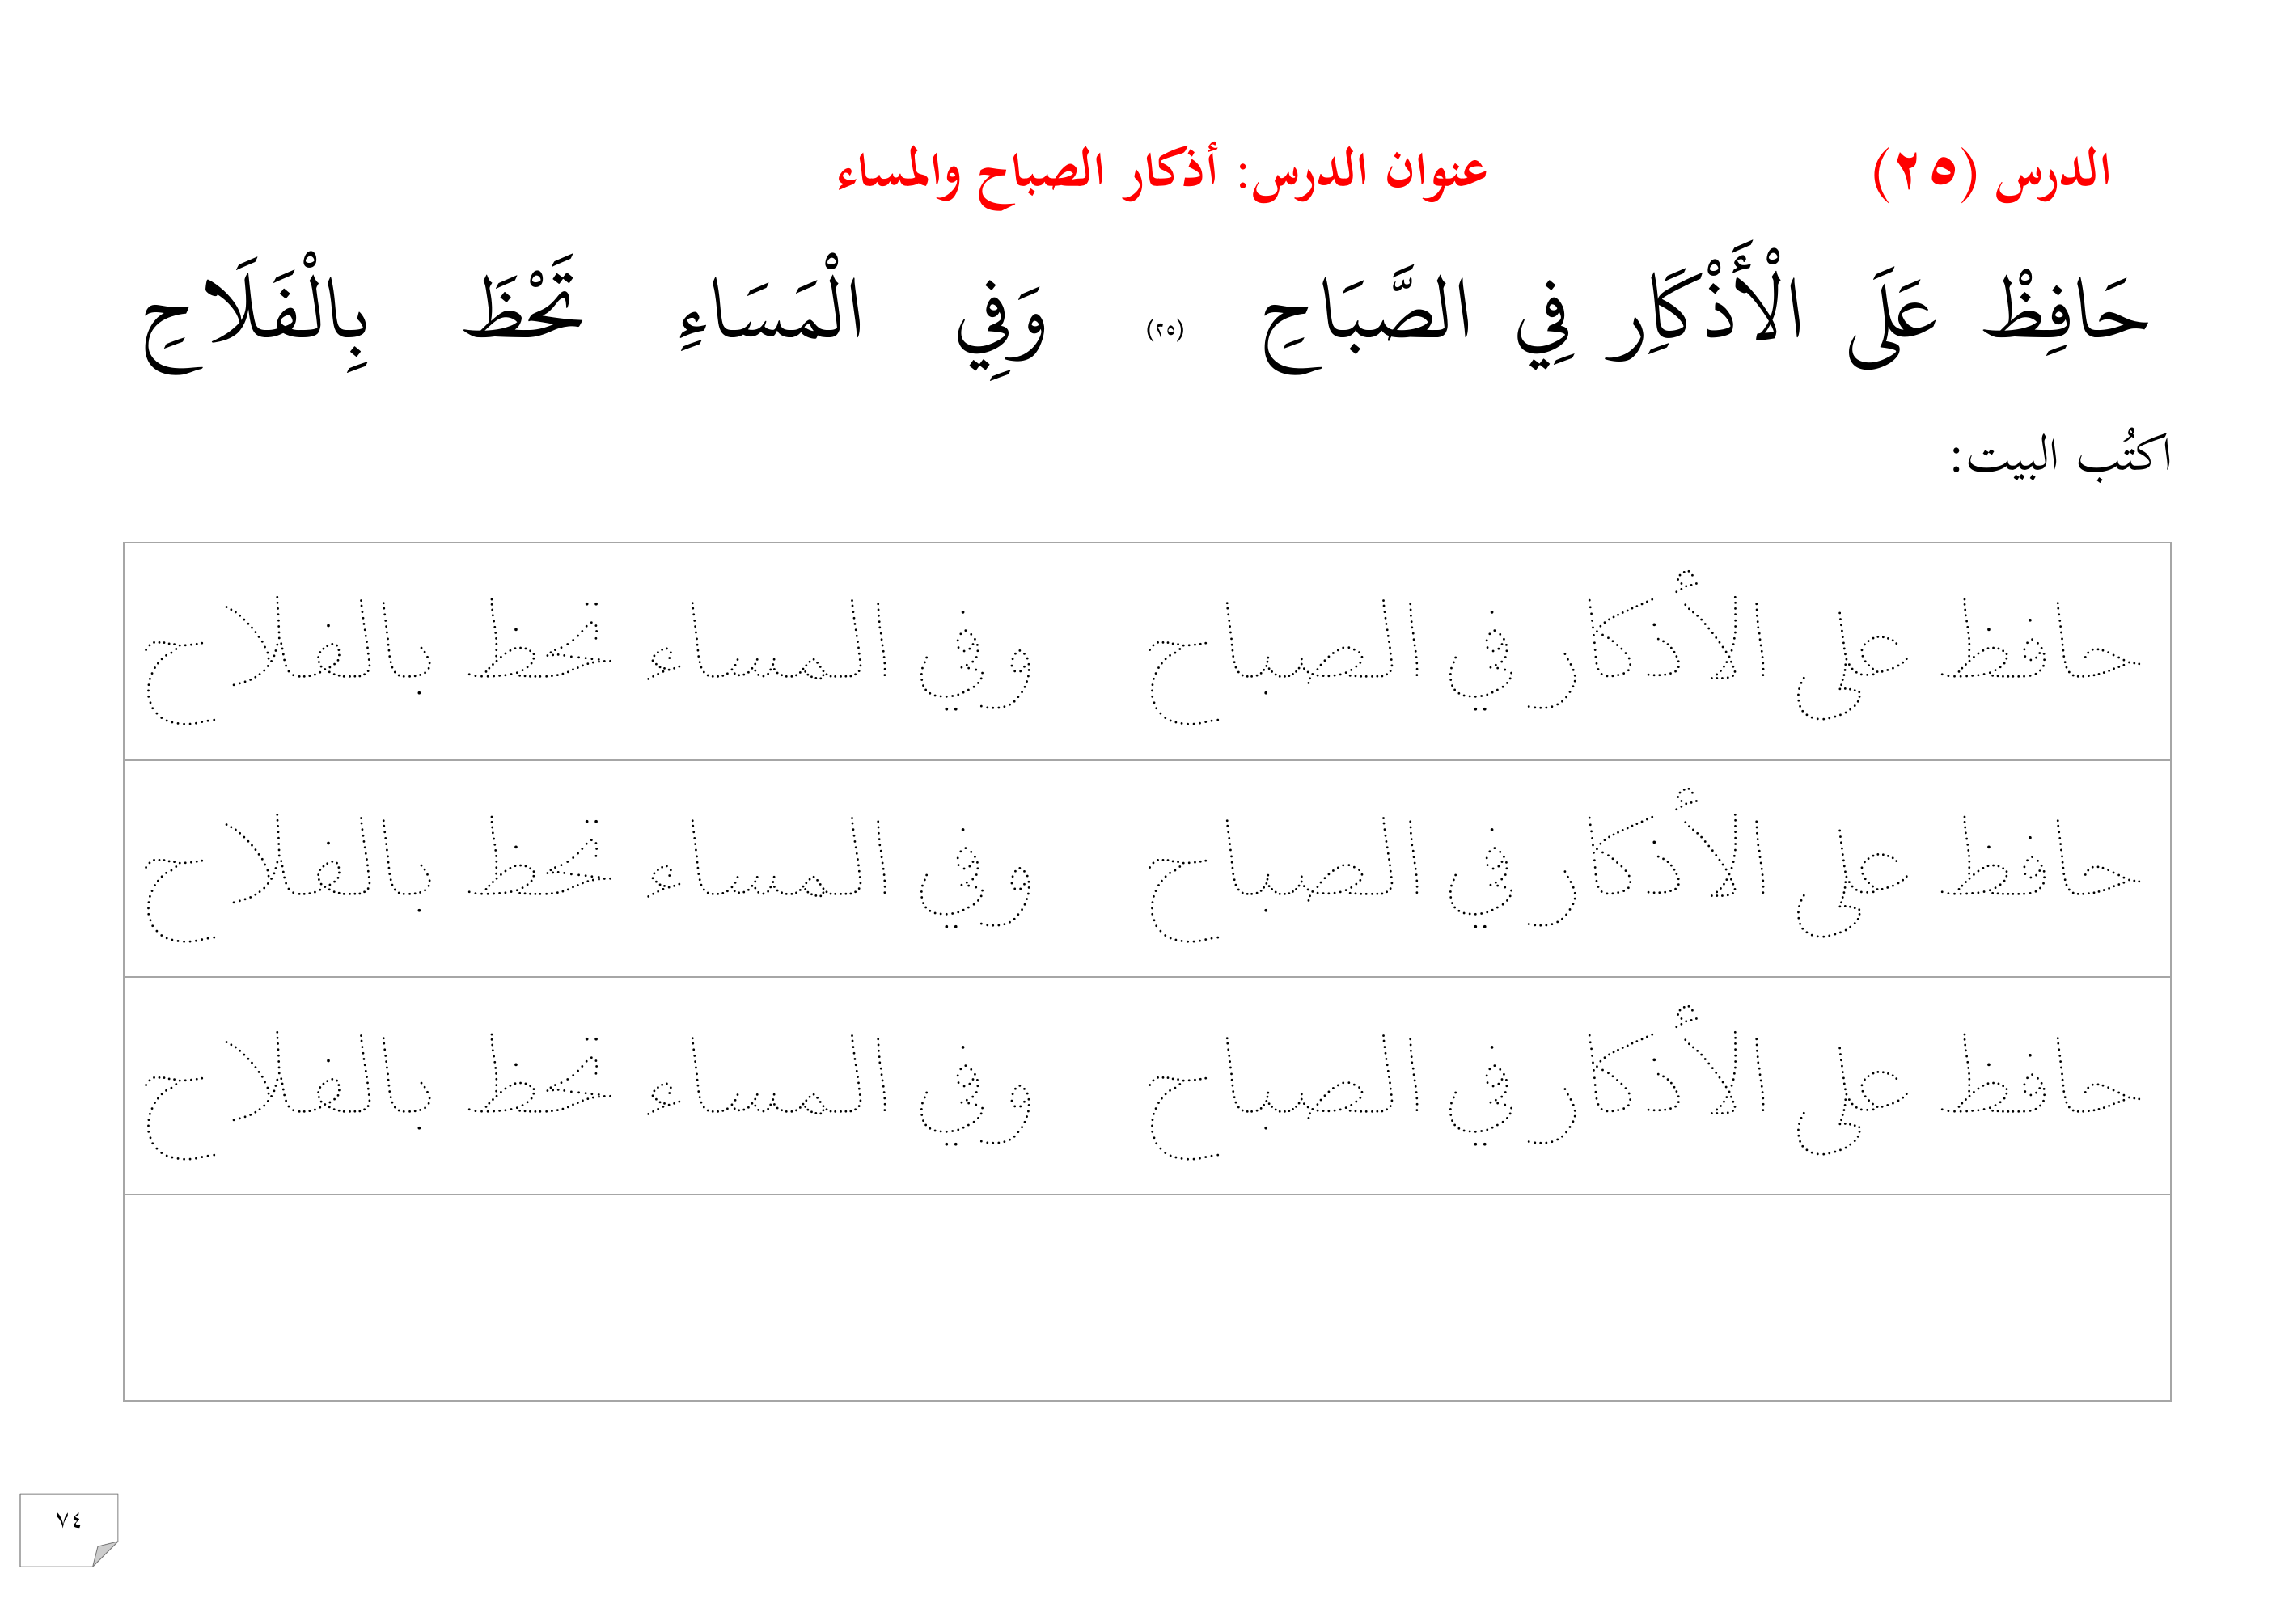 الدرس (٢٥) عنوان الدرس: أذكار الصباح والمساء
حَافِظْ عَلَى الْأَذْكَار فِي الصَّبَاحِ (٢٥) وَفِي الْمَسَاءِ تَحْظَ بِالْفَلَاحِ
اكتُب البيت:
حافظ على الأذكار في الصباح وفي المساء تحظ بالفلاح
حافظ على الأذكار في الصباح وفي المساء تحظ بالفلاح
حافظ على الأذكار في الصباح وفي المساء تحظ بالفلاح
٧٤